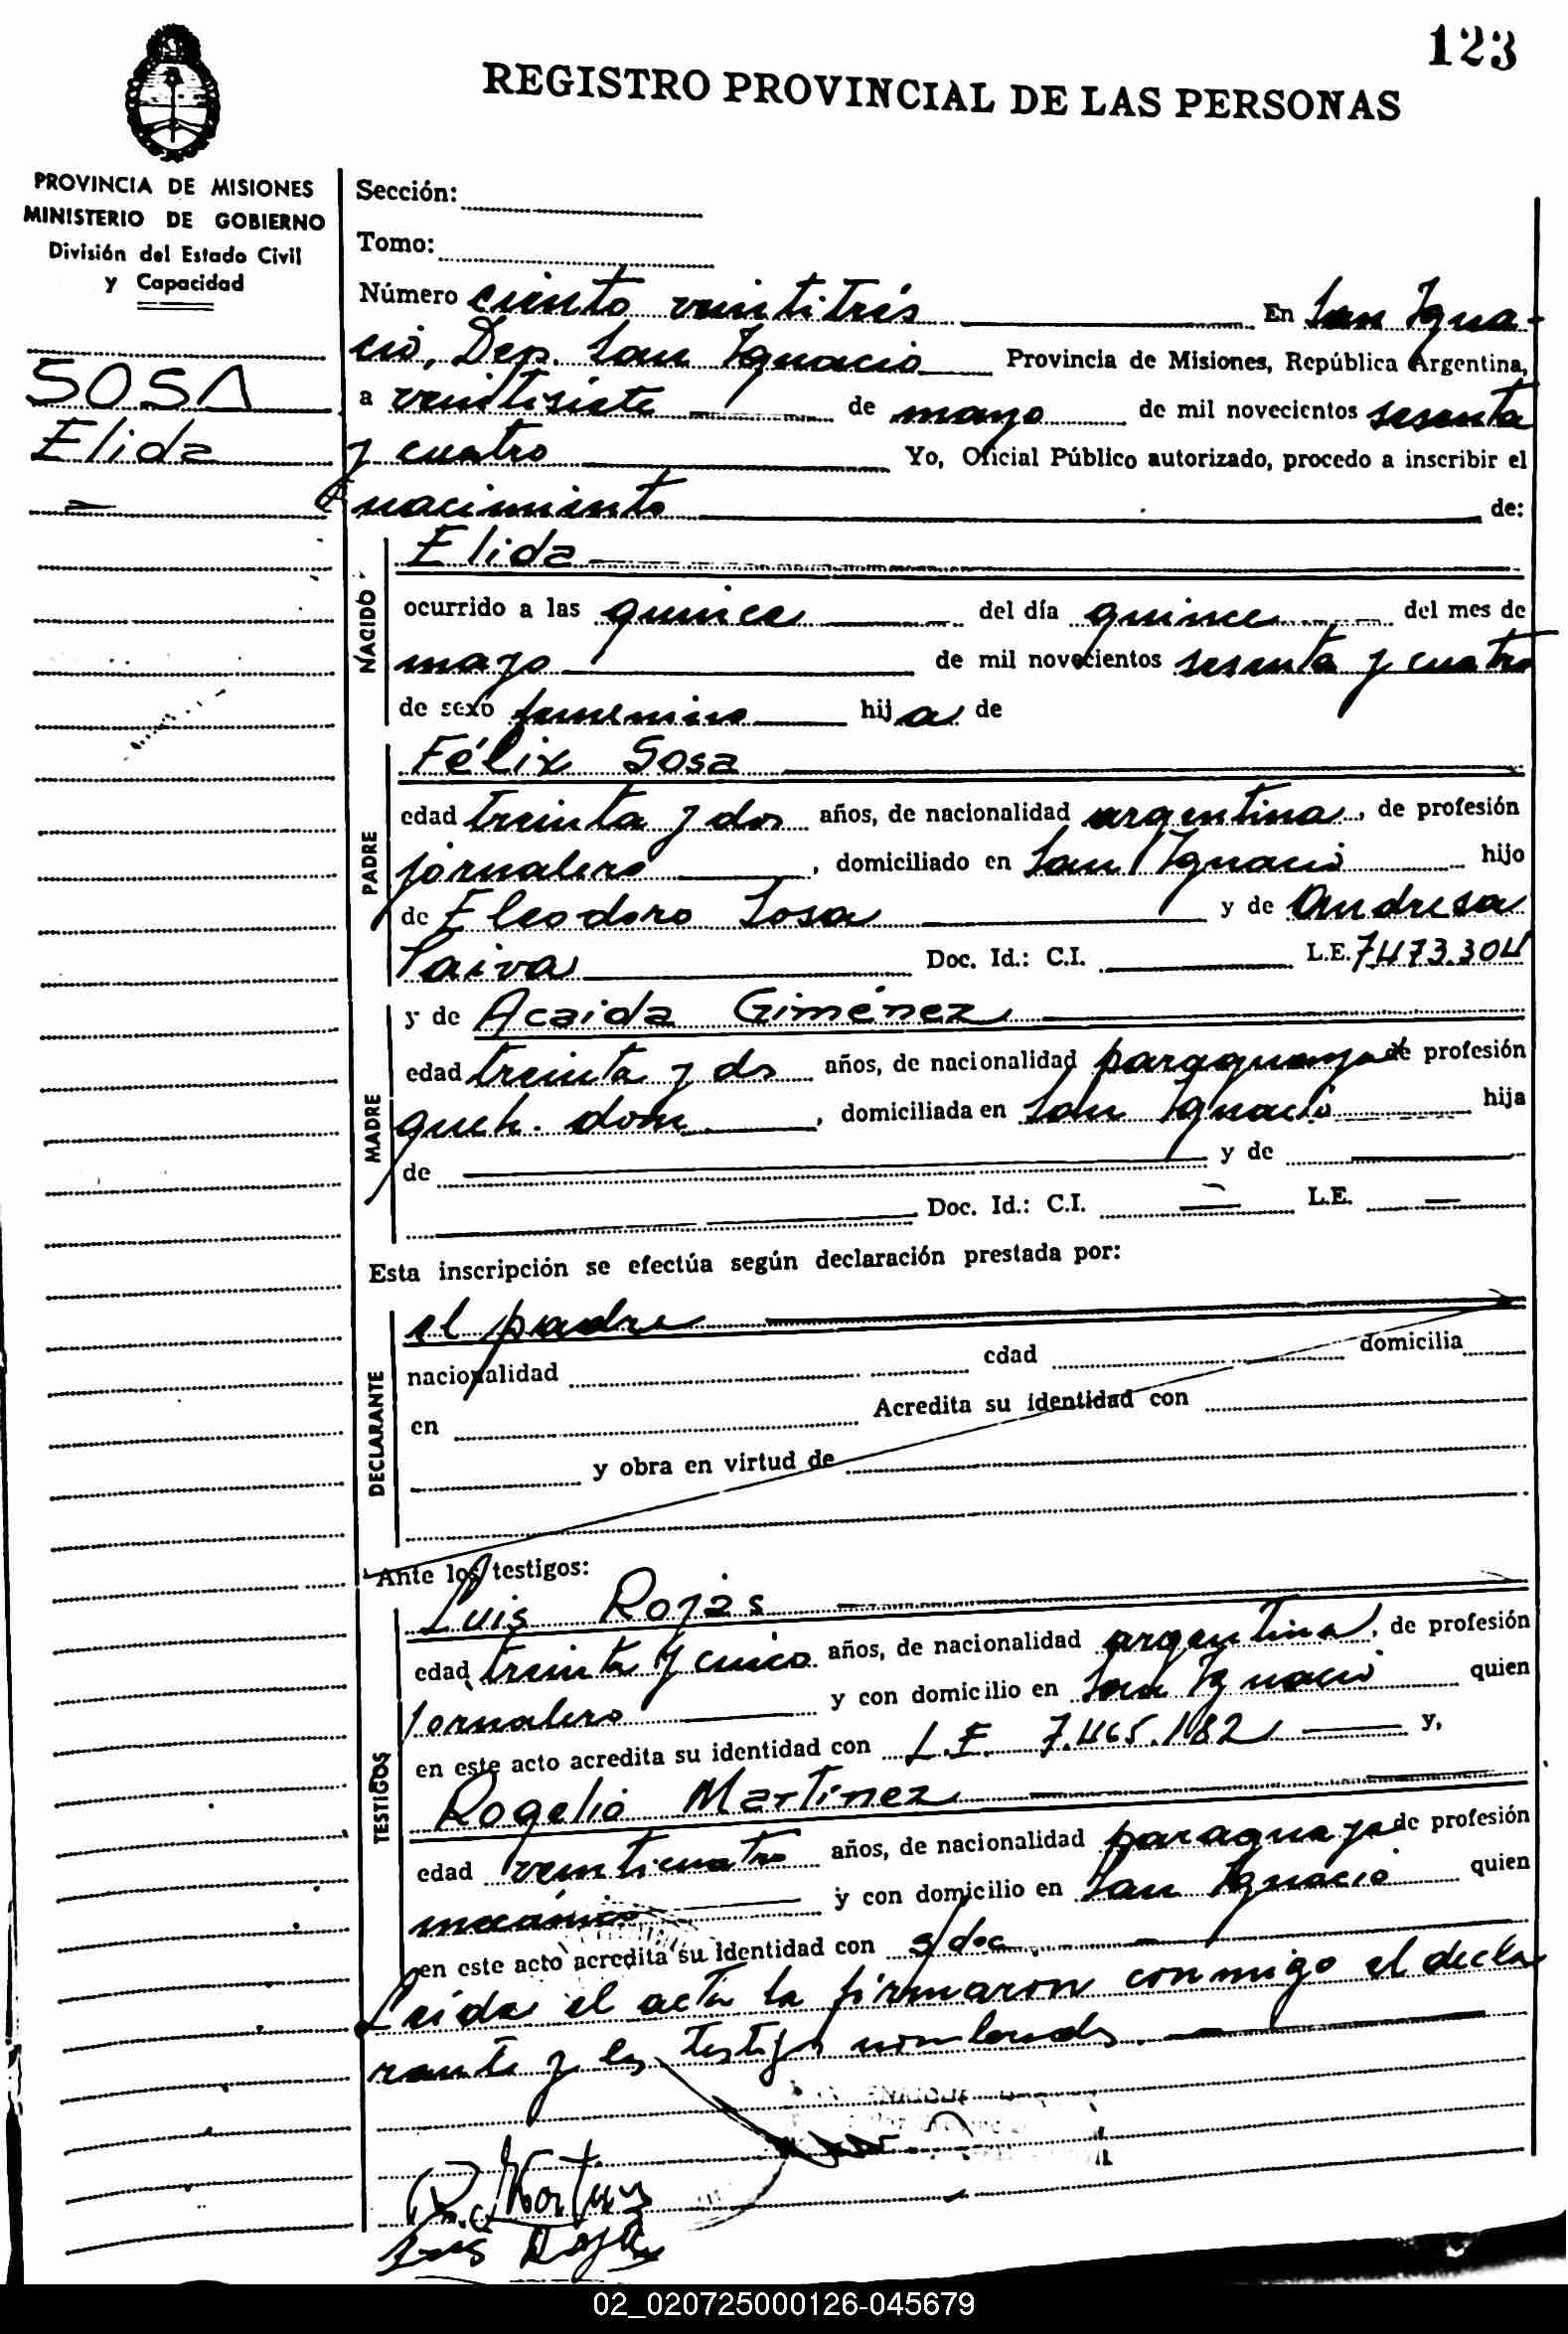 123
REGISTRO PROVINCIAL DE LAS PERSONAS
PROVINCIA DE MISIONES
MINISTERIO DE GOBIERNO
División del Estado Civil
y Capacidad
SOSA
Elida
Sección:
Tomo:
Número ciento veintitrés En San Igna-
cio, Dep. San Ignacio Provincia de Misiones, República Argentina,
a veintisiete de mayo de mil novecientos sesenta
y cuatro Yo, Oficial Público autorizado, procedo a inscribir el
nacimiento de:
NACIDO
Elida
ocurrido a las quince del día quince del mes de
mayo de mil novecientos sesenta y cuatro
de sexo femenino hija de
PADRE
Félix Sosa
edad treinta y dos años, de nacionalidad argentina, de profesión
jornalero, domiciliado en San Ignacio hijo
de Eleodoro Sosa y de Andresa
Paiva Doc. Id.: C.I. L.E. 7.473.304
MADRE
y de Acaida Giménez
edad treinta y dos años, de nacionalidad paraguaya de profesión
queh. dom., domiciliada en San Ignacio hija
de y de
Doc. Id.: C.I. — L.E. —
Esta inscripción se efectúa según declaración prestada por:
DECLARANTE
el padre
nacionalidad edad domicilia
en Acredita su identidad con
y obra en virtud de
Ante los testigos:
TESTIGOS
Luis Rojas
edad treinta y cinco años, de nacionalidad argentina, de profesión
jornalero y con domicilio en San Ignacio quien
en este acto acredita su identidad con L.E. 7.465.182 y,
Rogelio Martínez
edad veinticuatro años, de nacionalidad paraguaya de profesión
mecánico y con domicilio en San Ignacio quien
en este acto acredita su identidad con s/doc.
Leída el acta la firmaron conmigo el decla
rante y los testigos nombrados.
Luis Rojas
02_020725000126-045679